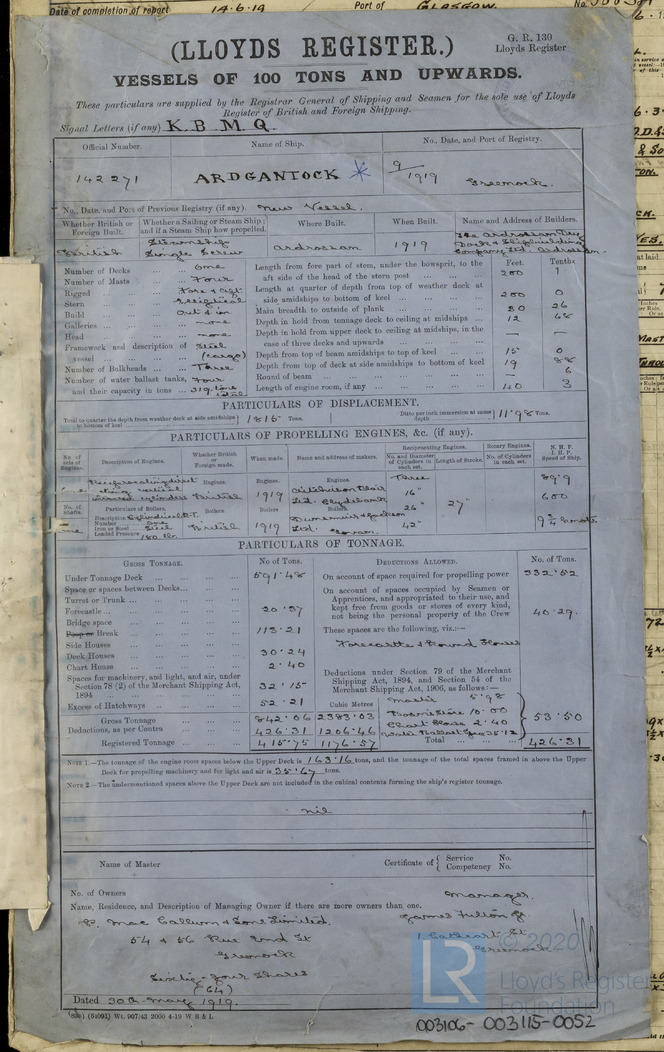 Date of completion of report 14.6.19 Port of GLASGOW. No.
(LLOYDS REGISTER.)
G. R. 130
Lloyds Register
VESSELS OF 100 TONS AND UPWARDS.
These particulars are supplied by the Registrar General of Shipping and Seamen for the sole use of Lloyds
Register of British and Foreign Shipping.
Signal Letters (if any) K.B.M.Q.
Official Number. Name of Ship. No., Date, and Port of Registry.
142271 ARDGANTOCK 9/1919 Greenock.
No., Date, and Port of Previous Registry (if any). New Vessel.
Whether British or Foreign Built. Whether a Sailing or Steam Ship; and if a Steam Ship how propelled. Where Built. When Built. Name and Address of Builders.
British Steamship Single Screw Ardrossan 1919 The Ardrossan Dry Dock & Shipbuilding Company Ltd. Ardrossan
Feet. Tenths.
Number of Decks One
Number of Masts Four
Rigged Fore & aft
Stern Elliptical
Build Out & in
Galleries none
Head none
Framework and description of vessel Steel (cargo)
Number of Bulkheads Three
Number of water ballast tanks, Four
and their capacity in tons 319 tons
Length from fore part of stem, under the bowsprit, to the
aft side of the head of the stern post 200 1
Length at quarter of depth from top of weather deck at
side amidships to bottom of keel 200 0
Main breadth to outside of plank 30 26
Depth in hold from tonnage deck to ceiling at midships 12 68
Depth in hold from upper deck to ceiling at midships, in the
case of three decks and upwards — —
Depth from top of beam amidships to top of keel 15 0
Depth from top of deck at side amidships to bottom of keel 19 88
Round of beam — 6
Length of engine room, if any 40 3
PARTICULARS OF DISPLACEMENT.
Total to quarter the depth from weather deck at side amidships to bottom of keel 1816 Tons. Ditto per inch immersion at same depth 11.98 Tons.
PARTICULARS OF PROPELLING ENGINES, &c. (if any).
No. of sets of Engines. Description of Engines. Whether British or Foreign made. When made. Name and address of makers. Reciprocating Engines. No. and Diameter of Cylinders in each set. Length of Stroke. Rotary Engines. No. of Cylinders in each set. N. H. P. I. H. P. Speed of Ship.
Reciprocating direct acting vertical inverted cylinders Engines. British Engines. 1919 Engines. Aitchison Blair Ltd. Clydebank Three 16" 26" 42" 27" 89.9 600 9¾ knots
No. of Shafts. Particulars of Boilers. Boilers Boilers Boilers.
Description Cylindrical R.T.
Number One
Iron or Steel Steel British 1919 Dunsmuir & Jackson Ltd. Govan
Loaded Pressure 180 lbs.
PARTICULARS OF TONNAGE.
GROSS TONNAGE. No of Tons. DEDUCTIONS ALLOWED. No. of Tons.
Under Tonnage Deck 591.48
Space or spaces between Decks
Turret or Trunk
Forecastle 20.37
Bridge space
Poop or Break 113.21
Side Houses
Deck Houses 30.24
Chart House 2.40
Spaces for machinery, and light, and air, under
Section 78 (2) of the Merchant Shipping Act,
1894 32.15
Excess of Hatchways 52.21
On account of space required for propelling power 332.52
On account of spaces occupied by Seamen or
Apprentices, and appropriated to their use, and
kept free from goods or stores of every kind,
not being the personal property of the Crew 40.29
These spaces are the following, viz.:—
Forecastle & Round House
Deductions under Section 79 of the Merchant
Shipping Act, 1894, and Section 54 of the
Merchant Shipping Act, 1906, as follows:—
Master 5.98
Boatswain's Store 10.00
Chart House 2.40
Water Ballast Space 35.12
53.50
Cubic Metres
Gross Tonnage 842.06 2383.03
Deductions, as per Contra 426.31 1206.46
Registered Tonnage 415.75 1176.57
Total 426.31
NOTE 1.—The tonnage of the engine room spaces below the Upper Deck is 163.16 tons, and the tonnage of the total spaces framed in above the Upper
Deck for propelling machinery and for light and air is 35.67 tons.
NOTE 2.—The undermentioned spaces above the Upper Deck are not included in the cubical contents forming the ship's register tonnage.
nil
Name of Master Certificate of { Service No. Competency No.
No. of Owners
Name, Residence, and Description of Managing Owner if there are more owners than one.
Manager.
P. Mac Callum & Sons Limited. James Fulton Jr
54 & 56 Rue End St 1 Cathcart St
Greenock Greenock
Sixty-four Shares
(64)
Dated 30th May 1919.
Wt. 907/43 2000 4-19 W B & L
LR © 2020
Lloyd's Register
Foundation
003106-003115-0052